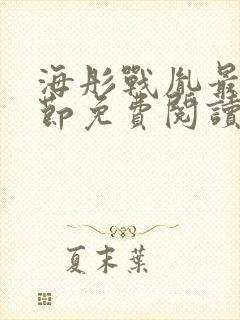 海彤戰胤最
節免費閱讀
夏末葉